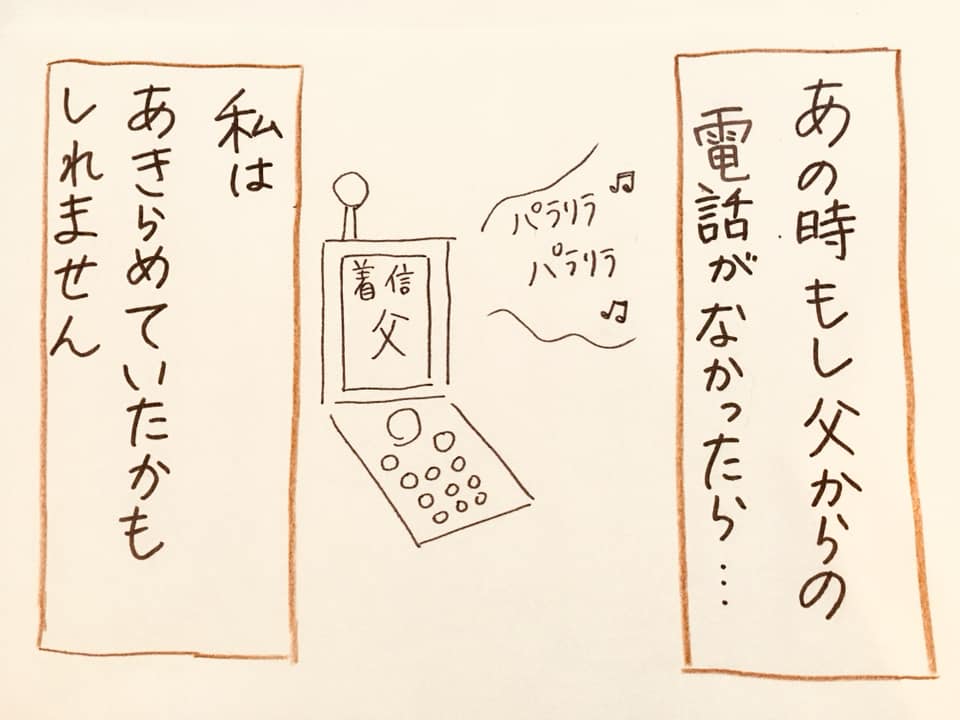 あの時もし父からの
電話がなかったら…
パラリラ
パラリラ
着信
父
私は
あきらめていたかも
しれません